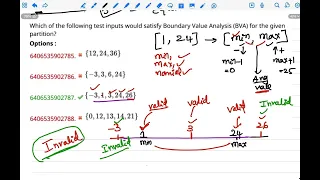 Which of the following test inputs would satisfy Boundary Value Analysis (BVA) for the given
partition?
Options :
[1, 24] → [min, max]
6406535902785. {12,24,36}
min,
max,
min-1
=0
max+1
=25
6406535902786. {-3,3,6,24}
Any
value
6406535902787. {-3,1,3,24,26}
valid
valid
valid
Invalid
6406535902788. {0,12,13,14,21}
-3
1
3
24
26
min
max
Invalid
Invalid